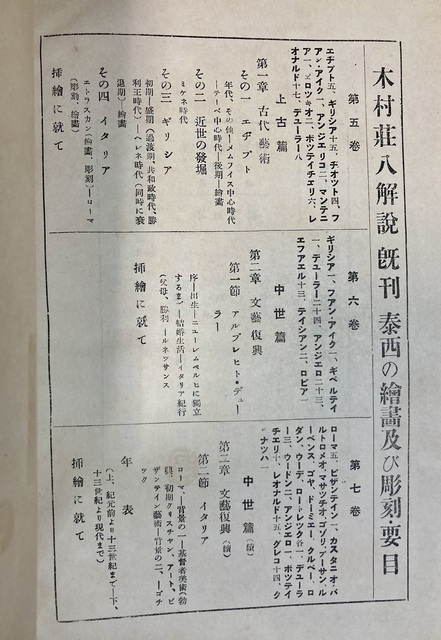 木村莊八解說 既刊 泰西の繪畫及び彫刻・要目
第五卷
エヂプト五、ギリシア十五、ヂオット四、フ
アン・アイク一、アンヂェリコ二、マンテニ
ア一、エロッキオ二、ボッテイチエリ六、レ
オナルド十七、デューラー八
上古篇
第一章 古代藝術
その一 エヂプト
年代、その他―メムフイス中心時代
―テーベ中心時代、後期、繪畫
その二 近世の發堀
ミケネ時代
その三 ギリシア
初期―盛期(過渡期、共和政時代、勝
利王時代)―ヘレネ時代(同時に衰
退期)―繪畫
その四 イタリア
エトラスカン(繪畫、彫刻)―ローマ
(彫刻、繪畫)
挿繪に就て
第六卷
ギリシア一、フアン・アイク一、ギベルテイ
一、デューラー二十四、アンジエロ二十三、
エフアエル十三、テイシアン二、ロビア一
中世篇
第二章 文藝復興
第一節 アルブレヒト・デュー
ラー
序―出生―ニューレムベルヒに獨立
するまで―結婚生活―イタリア紀行
(父母、勝利―ルネッサンス
挿繪に就て
第七卷
ローマ五、ビザンテイン一、カスタニオ・バ
ルトロメオ、マサッチオ、ゴゾリ、アーサン、ル
ーベンス、ゴヤ、ドーミエー、クルベー、ロ
ダン、ウーデ、ロートレック各一、デューラ
ー三、ウードン二、アンジエロ一、ボッテイ
チエリ十、レオナルド十五、グレコ十四、ク
ナッハ一
中世篇(續)
第二章 文藝復興(續)
第二節 イタリア
ローマ、背景の一―基督者美術(勃
興、初期クリスチャン、アート、ビ
ザンテイン藝術)―背景の二、―ゴチ
ック
年表
(上、紀元前より十三世紀まで―下、
十三世紀より現代まで)
挿繪に就て